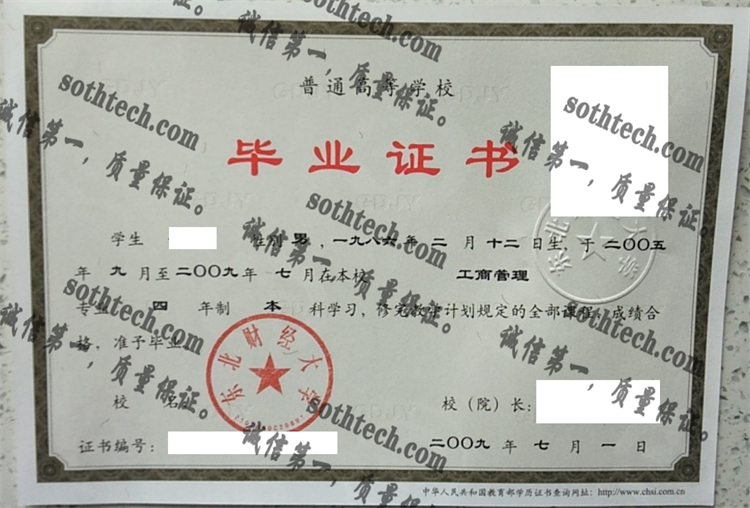 普通高等学校
毕业证书
学生 性别 男，一九八六年 二 月 十二日生，于 二〇〇五
年 九 月至二〇〇九年 七 月在本校 工商管理
专业 四 年制 本 科学习，修完教学计划规定的全部课程，成绩合
格，准予毕业
东北财经大学
校 名
校（院）长：
证书编号：
二〇〇九 年 七 月 一 日
中华人民共和国教育部学历证书查询网址：http://www.chsi.com.cn
sothtech.com
诚信第一，质量保证。
sothtech.com
诚信第一，质量保证。
sothtech.com
诚信第一，质量保证。
sothtech.com
诚信第一，质量保证。
sothtech.com
诚信第一，质量保证。